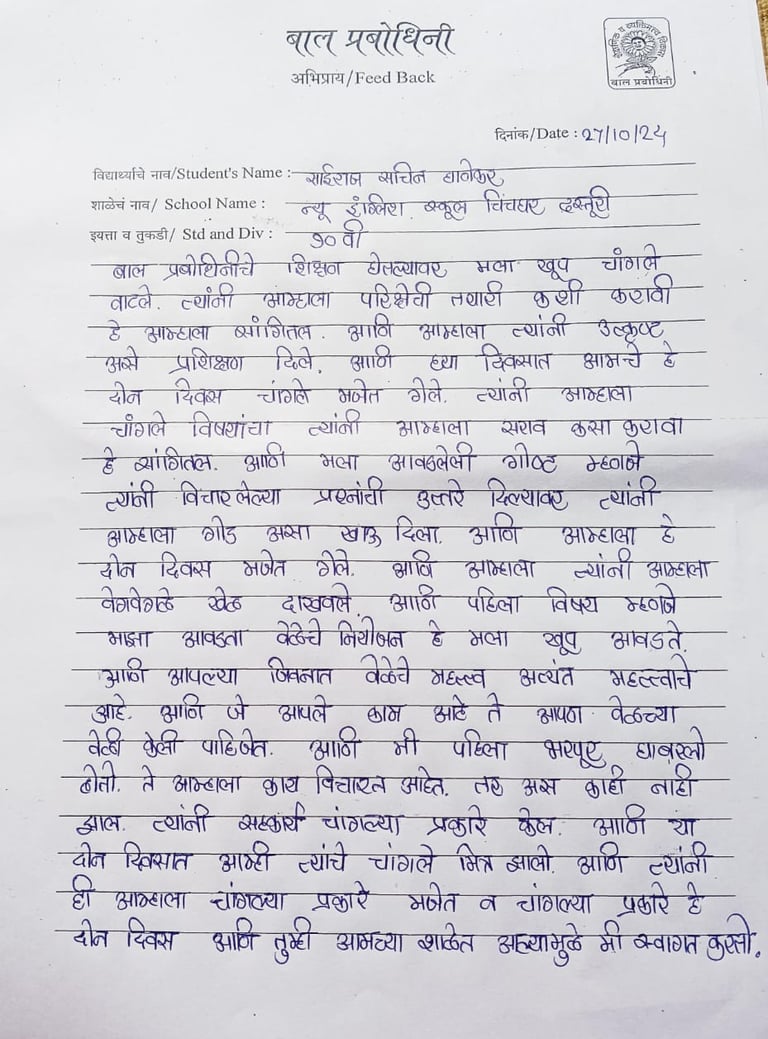 बाल प्रबोधिनी
अभिप्राय/Feed Back
बाल प्रबोधिनी
दिनांक/Date : 27/10/24
विद्यार्थ्याचे नाव/Student's Name : साईराज सचिन घाणेकर
शाळेचं नाव/ School Name : न्यू इंग्लिश स्कूल चिंचघर दस्तूरी
इयत्ता व तुकडी/ Std and Div : १० वी
बाल प्रबोधिनीचे शिक्षण घेतल्यावर मला खूप चांगले
वाटले. त्यांनी आम्हाला परिक्षेची तयारी कशी करावी
हे आम्हाला सांगितल. आणि आम्हाला त्यांनी उत्कृष्ट
असे प्रशिक्षण दिले. आणि ह्या दिवसात आमचे हे
दोन दिवस चांगले मजेत गेले. त्यांनी आम्हाला
चांगले विषयांचा त्यांनी आम्हाला सराव कसा करावा
हे सांगितल. आणि मला आवडलेली गोष्ट म्हणजे
त्यांनी विचारलेल्या प्रश्नांची उत्तरे दिल्यावर त्यांनी
आम्हाला गोड असा खाऊ दिला. आणि आम्हाला हे
दोन दिवस मजेत गेले. आणि आम्हाला त्यांनी आम्हाला
वेगवेगळे खेळ दाखवले. आणि पहिला विषय म्हणजे
माझा आवडता वेळेचे नियोजन हे मला खूप आवडते.
आणि आपल्या जिवनात वेळेचे महत्त्व अत्यंत महत्त्वाचे
आहे. आणि जे आपले काम आहे ते आपण वेळच्या
वेळी केली पाहिजेत. आणि मी पहिला भरपूर घाबरलो
होतो. ते आम्हाला काय विचारत आहेत. तर अस काही नाही
झाल. त्यांनी सहकार्य चांगल्या प्रकारे केल. आणि या
दोन दिवसात आम्ही त्यांचे चांगले मित्र झालो. आणि त्यांनी
ही आम्हाला चांगल्या प्रकारे मजेत व चांगल्या प्रकारे हे
दोन दिवस आणि तुम्ही आमच्या शाळेत आल्यामुळे मी स्वागत करतो.